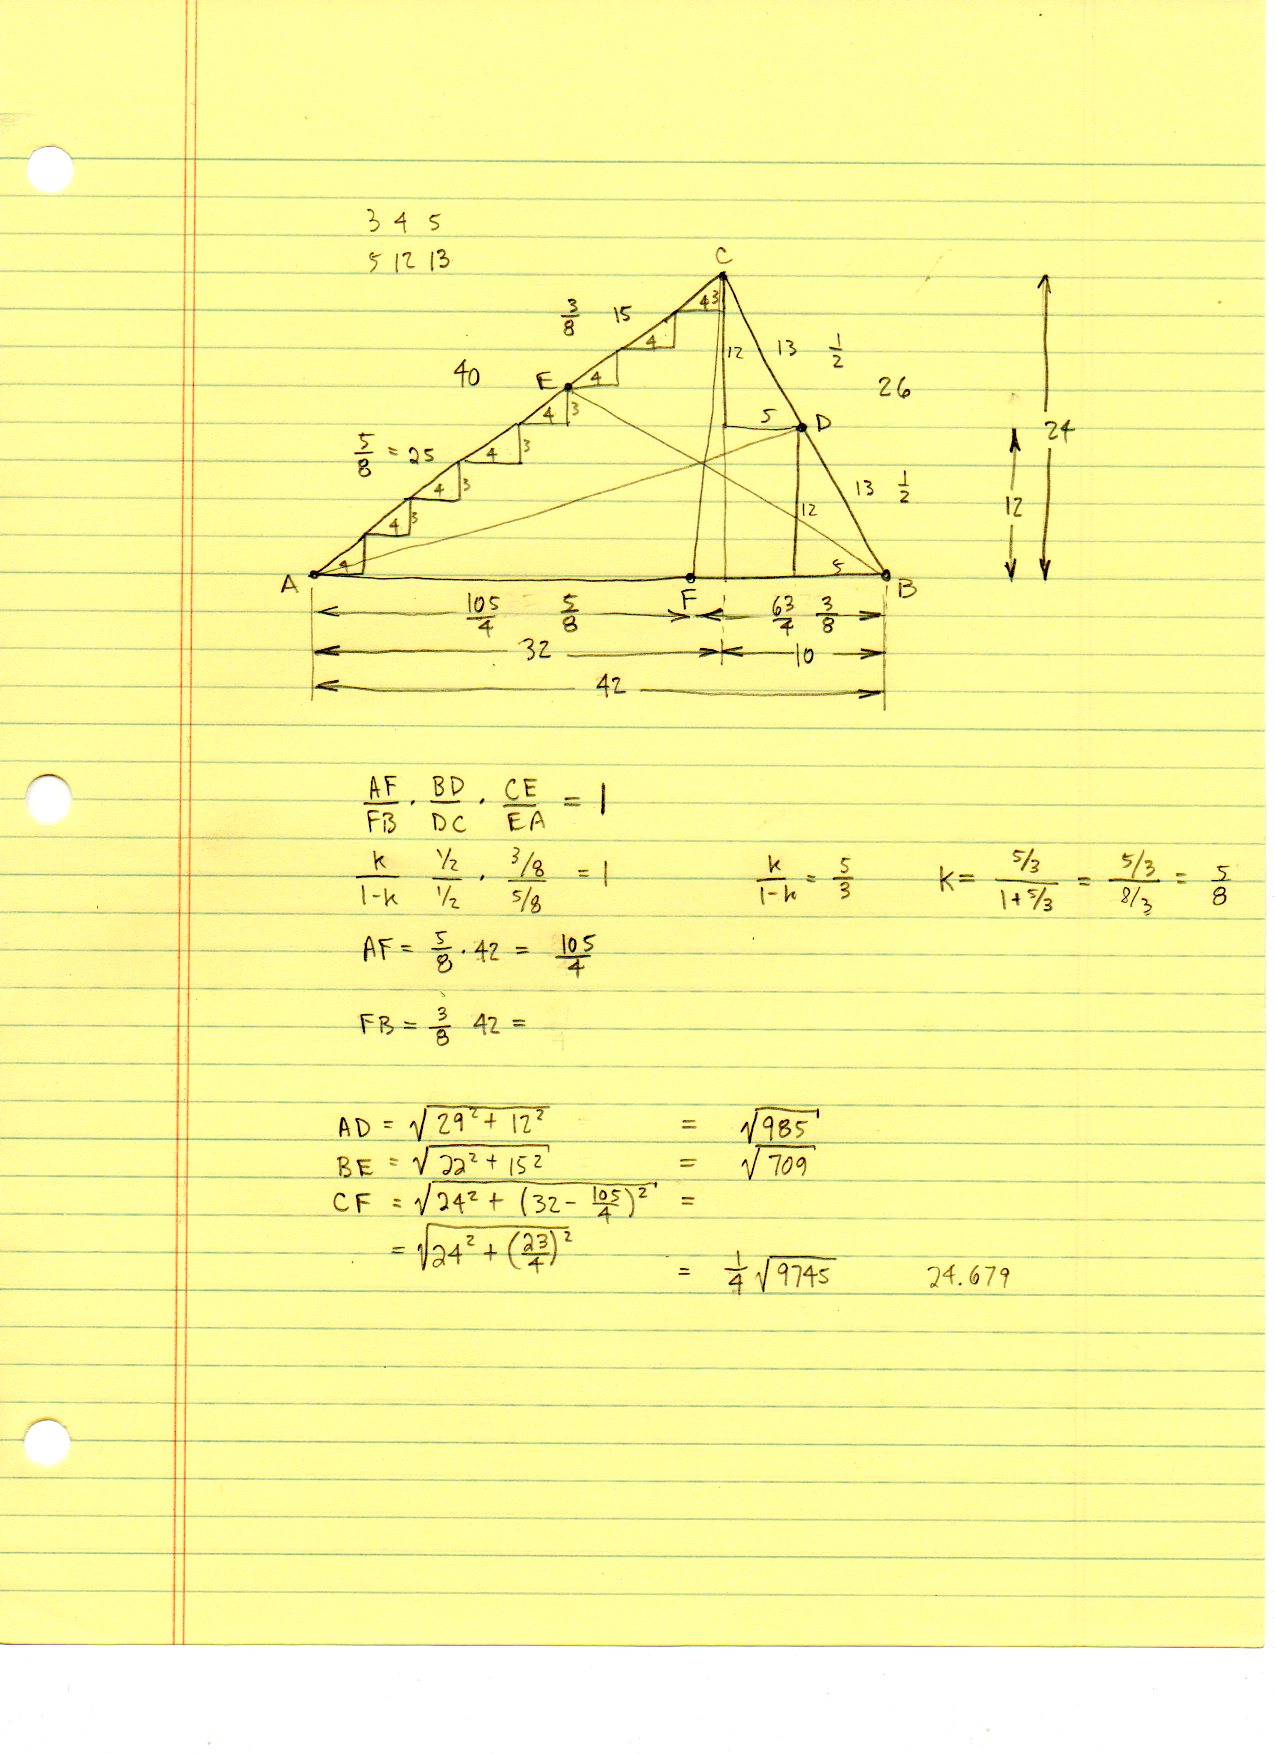 3 4 5
5 12 13
C
3/8 15 4 3
4 12 13 1/2
40 E 4 26
4 3 5 D 24
5/8 = 25 4 3
4 3 13 1/2
4 3 12 12
A 4 5 B
F
105/4 5/8 63/4 3/8
32 10
42
AF/FB · BD/DC · CE/EA = 1
k/1-k 1/2/1/2 · 3/8/5/8 = 1 k/1-k = 5/3 k = 5/3/1+5/3 = 5/3/8/3 = 5/8
AF = 5/8 · 42 = 105/4
FB = 3/8 42 =
AD = √(29² + 12²) = √985
BE = √(22² + 15²) = √709
CF = √(24² + (32 - 105/4)²) =
= √(24² + (23/4)²)
= 1/4 √9745 24.679